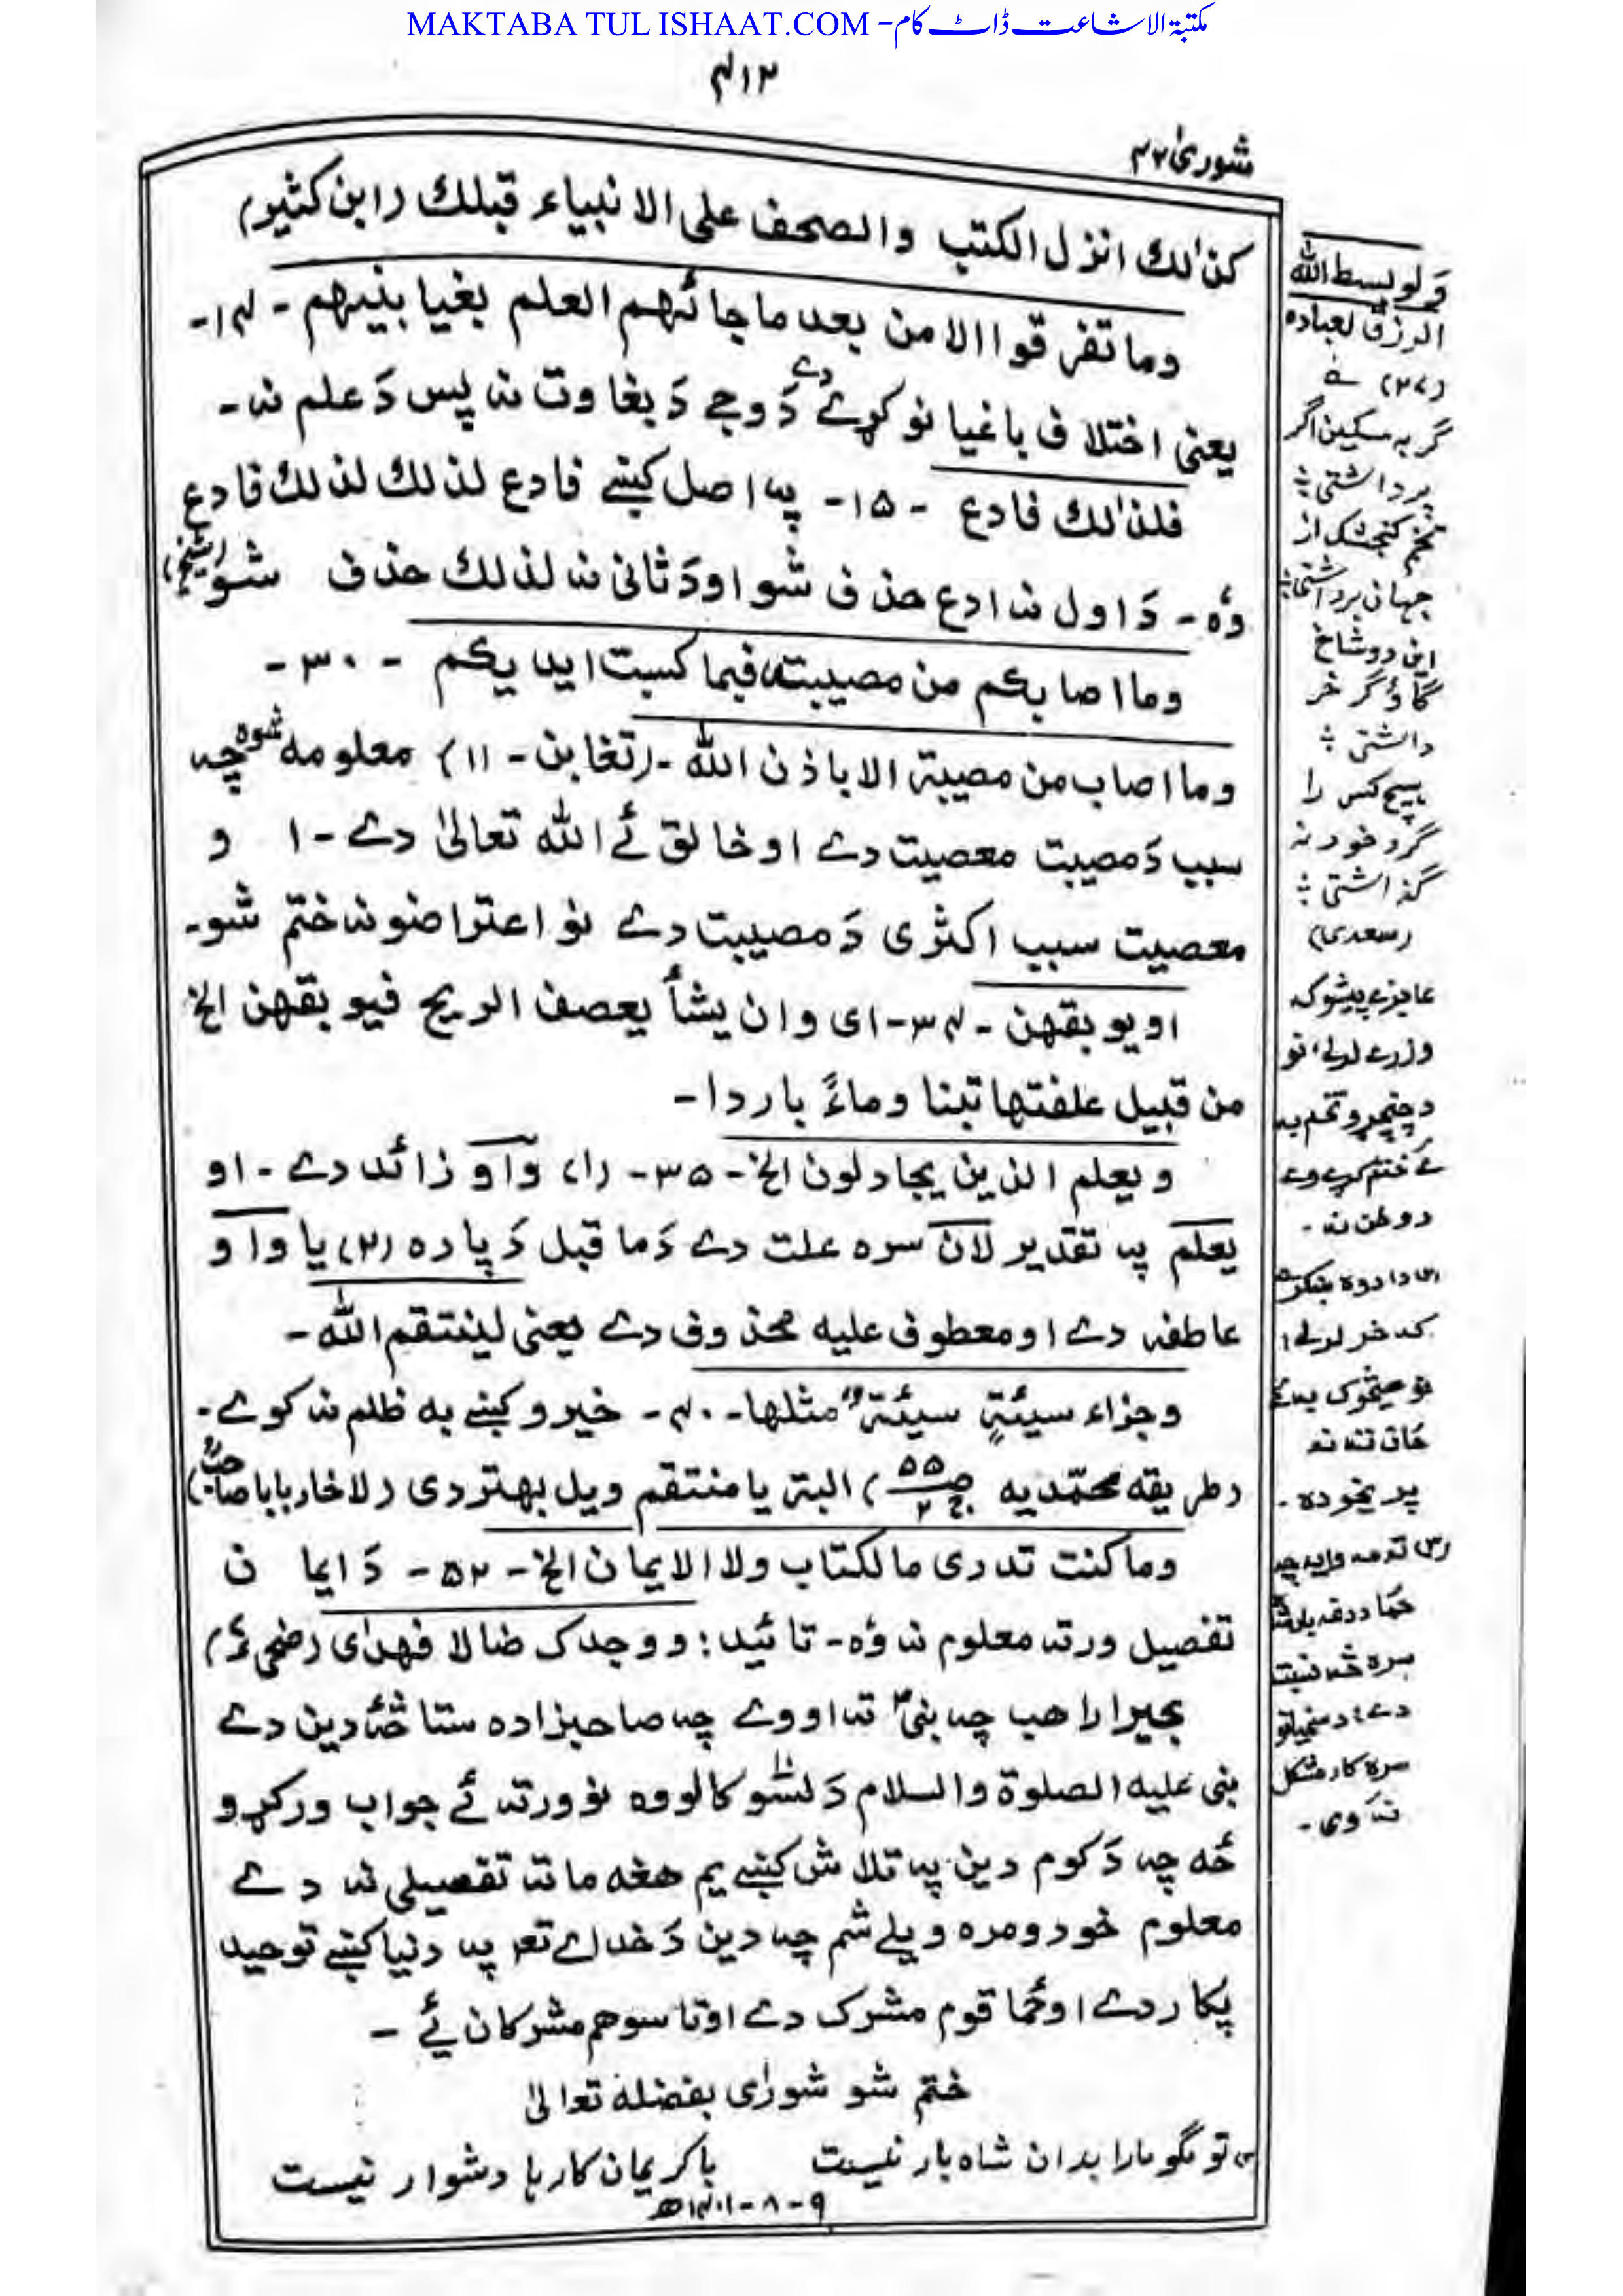 MAKTABA TUL ISHAAT.COM - مکتبة الاشاعت ڈاٹ کام
۴۱۲
شوریٰ ۴۲
کذٰلك انزل الکتب والصحف علی الانبیاء قبلك (ابن کثیر)
وما تفرقوا الا من بعد ما جائهم العلم بغیا بینهم - ۱۴-
یعنی اختلاف باغیانو کړے دے دَ وجے دَ بغاوت نه پس دَ علم نه-
فلذٰلك فادع - ۱۵- په اصل کښے فادع لذلك لذلك فادع
وُه - دَ اول نه ادع حذف شو او دَ ثانی نه لذلك حذف شو (شیخ)
وما اصابکم من مصیبته فیما کسبت ایدیکم - ۳۰-
وما اصاب من مصیبة الا باذن الله - (تغابن - ۱۱) معلومه شوه چه
سبب دَ مصیبت معصیت دے او خالق ئے الله تعالیٰ دے - ۱ و
معصیت سبب اکثری دَ مصیبت دے نو اعتراضونه ختم شو-
او یوبقهن - ۳۴- ای وان یشأ یعصف الریح فیوبقهن الخ
من قبیل علفتها تبنا وماءً باردا -
ویعلم الذین یجادلون الخ - ۳۵- (۱) واو زائد دے - او
یعلم په تقدیر لان سره علت دے دَ ما قبل دَ پاره (۲) یا واو
عاطفه دے او معطوف علیه محذوف دے یعنی لینتقم الله -
وجزاء سیئةٍ سیئةٌ مثلها - ۴۰- خیرو کښے به ظلم نه کوے-
(طریقه محمّدیه ج۲ ص۵۵) البته یا منتقم ویل بهتر دی (لاخار بابا صاحبؒ)
وما کنت تدری مالکتاب ولا الایمان الخ - ۵۲- دَ ایمان
تفصیل ورته معلوم نه وُه - تائید: ووجدك ضالا فهدٰی (ضحی ۷)
بحیرا راهب چه نبیؐ ته اووے چه صاحبزاده ستا څه دین دے
نبی علیه الصلوة والسلام دَ لسو کالو وه نو ورته ئے جواب ورکړو
څه چه دَ کوم دین په تلاش کښے یم هغه ما ته تفصیلی نه دے
معلوم خو دومره ویلے شم چه دین دَ خداے تعہ په دنیا کښے توحید
پکار دے او ځما قوم مشرك دے او تاسو هم مشرکان یئ -
ختم شو شورٰی بفضله تعالیٰ
تو مگو ما را بدان شاه بار نیست    با کریمان کارہا دشوار نیست
۹-۸-۱۴۰۱ھ
ولو بسط الله
الرزق لعباده
(۲۷)
گر به مسکین اگر
پر داشتی ؛
تخم کنجشک از
جہان برداشتی ؛
این دو شاخ
گاؤ گر خر
داشتی ؛
ہیچ کس را
گرد خود نه
گذاشتی ؛
(سعدی)
عاجزے پیشوکه
وزرے لرلے نو
د چنچړو تخم به
ئے ختم کړے وے
د وطن نه -
که خر لرلے
ځان ته نه
پریخوده -
سره څه نسبت
سره کار مشکل
نه وی -